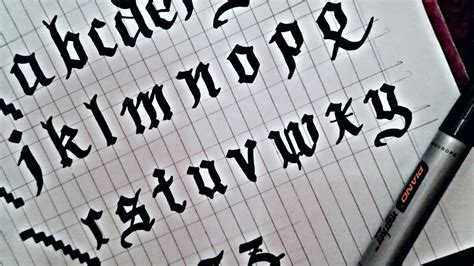 abcde
jklmnopq
rstuvwxy
PIANO